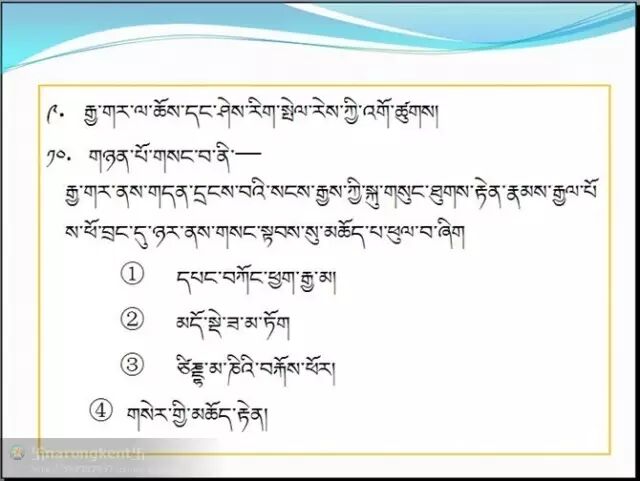 ༩. རྒྱ་གར་ལ་ཆོས་དང་ཤེས་རིག་སྤེལ་རེས་ཀྱི་འགོ་ཚུགས།
༡༠. གཉན་པོ་གསང་བ་ནི་—
རྒྱ་གར་ནས་གདན་དྲངས་བའི་སངས་རྒྱས་ཀྱི་སྐུ་གསུང་ཐུགས་རྟེན་རྣམས་རྒྱལ་པོ
ས་ཕོ་བྲང་དུ་ཉར་ནས་གསང་སྟབས་སུ་མཆོད་པ་ཕུལ་བ་ཞིག
① དཔང་བཀོང་ཕྱག་རྒྱ་མ།
② མདོ་སྡེ་ཟ་མ་ཏོག
③ ཙིནྡྷ་མ་ཎིའི་བརྐོས་ཕོར།
④ གསེར་གྱི་མཆོད་རྟེན།